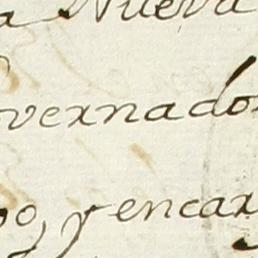 a Nueva
vernador
po, y encar